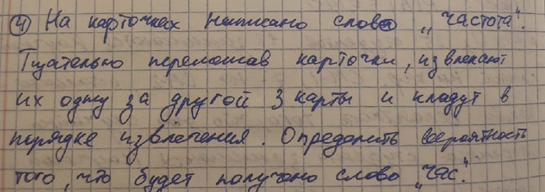 4) На карточках написано слово „частота".
Тщательно перемешав карточки, извлекают
их одну за другой 3 карты и кладут в
порядке извлечения. Определить вероятность
того, что будет получено слово „час".